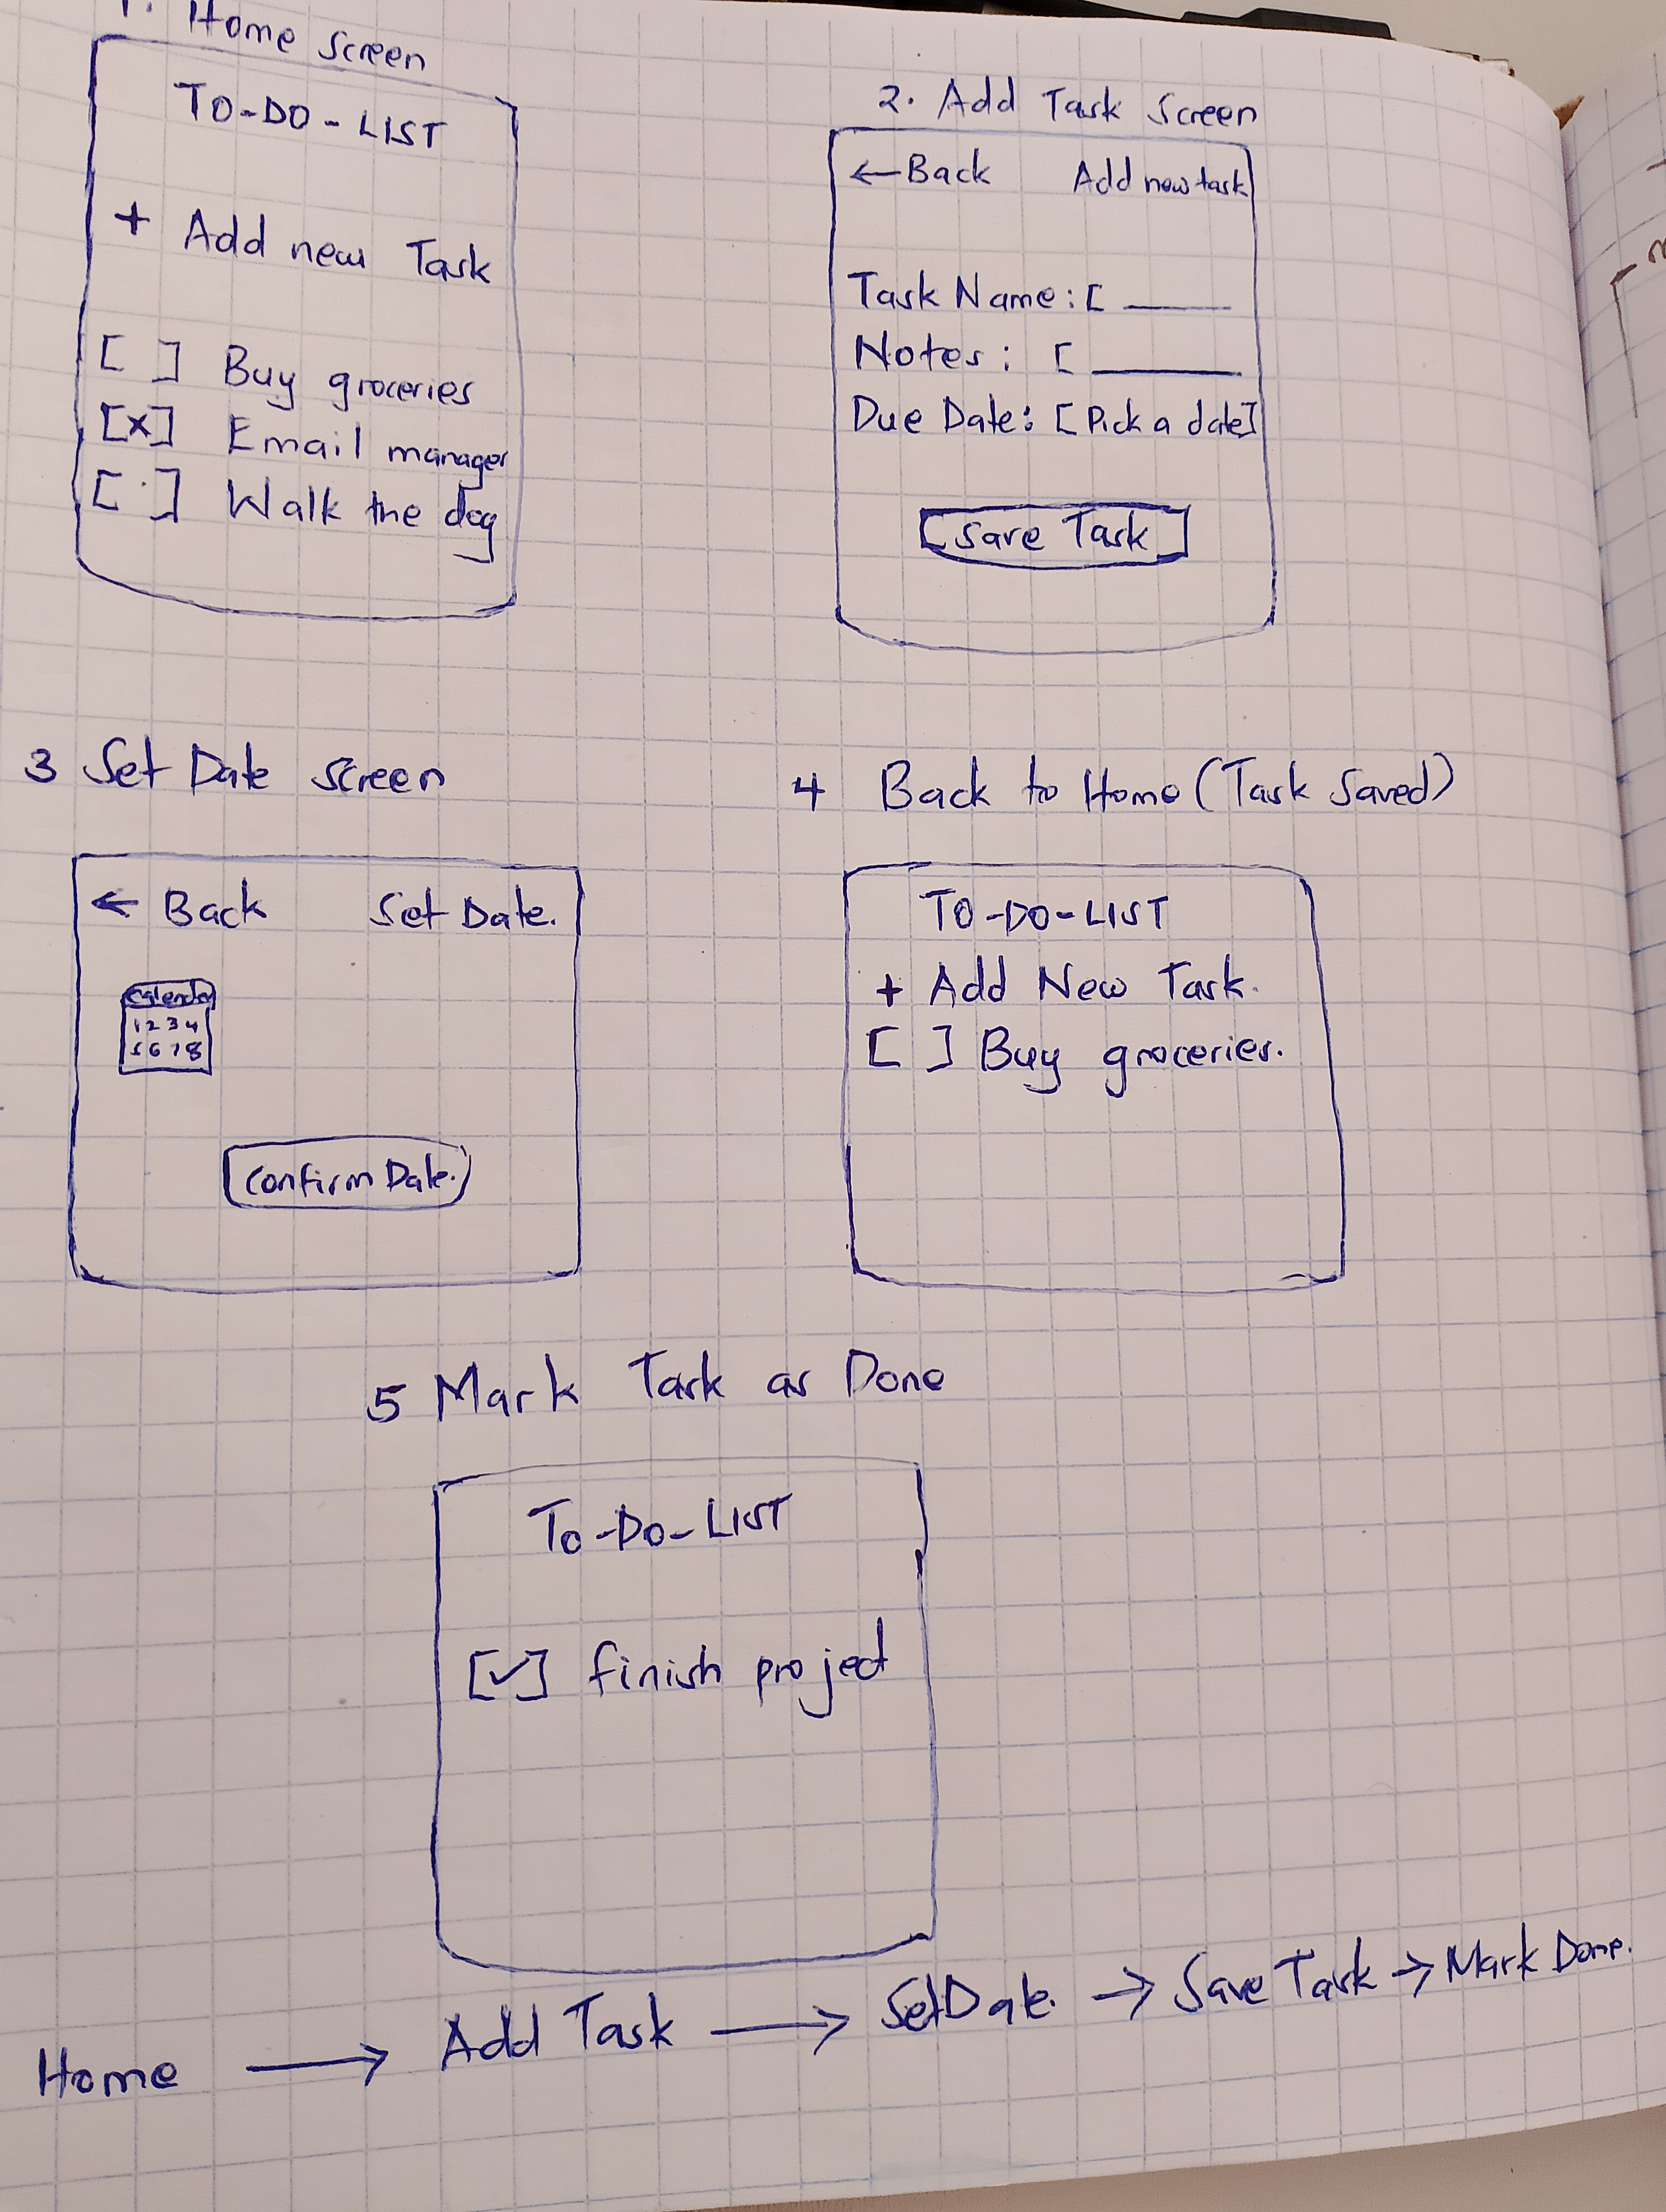 1. Home Screen
TO-DO-LIST
+ Add new Task
[ ] Buy groceries
[x] Email manager
[ ] Walk the dog
2. Add Task Screen
← Back Add new task
Task Name: [ _____
Notes: [ _____
Due Date: [Pick a date]
[Save Task]
3 Set Date Screen
← Back Set Date.
Calender
1 2 3 4
5 6 7 8
Confirm Date.
4 Back to Home (Task Saved)
TO-DO-LIST
+ Add New Task.
[ ] Buy groceries.
5 Mark Task as Done
To-Do-LIST
[✓] finish project
Home → Add Task → Set Date. → Save Task → Mark Done.